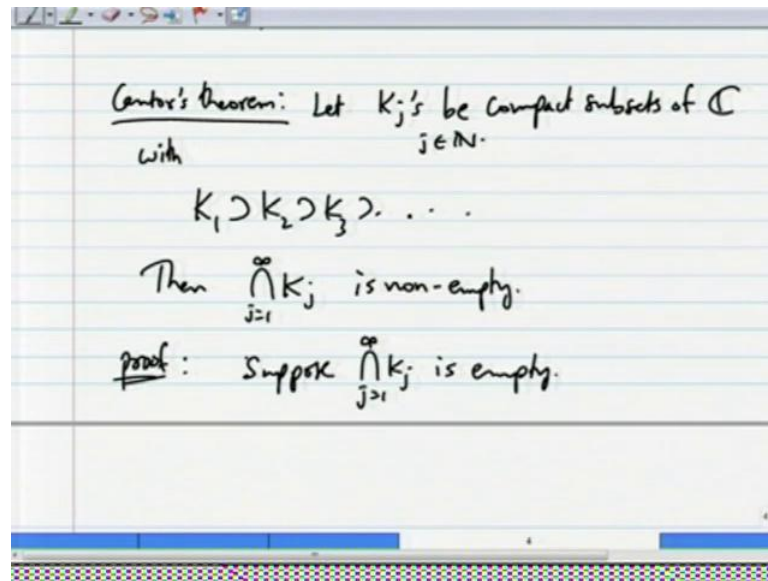 Cantor's theorem: Let Kj's be compact subsets of ℂ
j ∈ ℕ.
with
K₁ ⊃ K₂ ⊃ K₃ ⊃ . . . .
Then ∞⋂j=1 Kj is non-empty.
proof : Suppose ∞⋂j=1 Kj is empty.